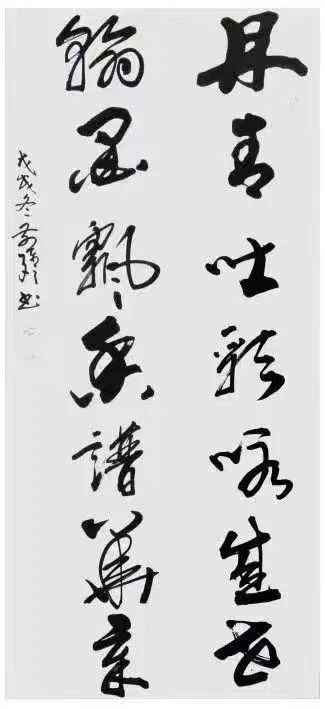 丹青吐彩咏盛世
翰墨飘香谱华章
戊戌冬
书